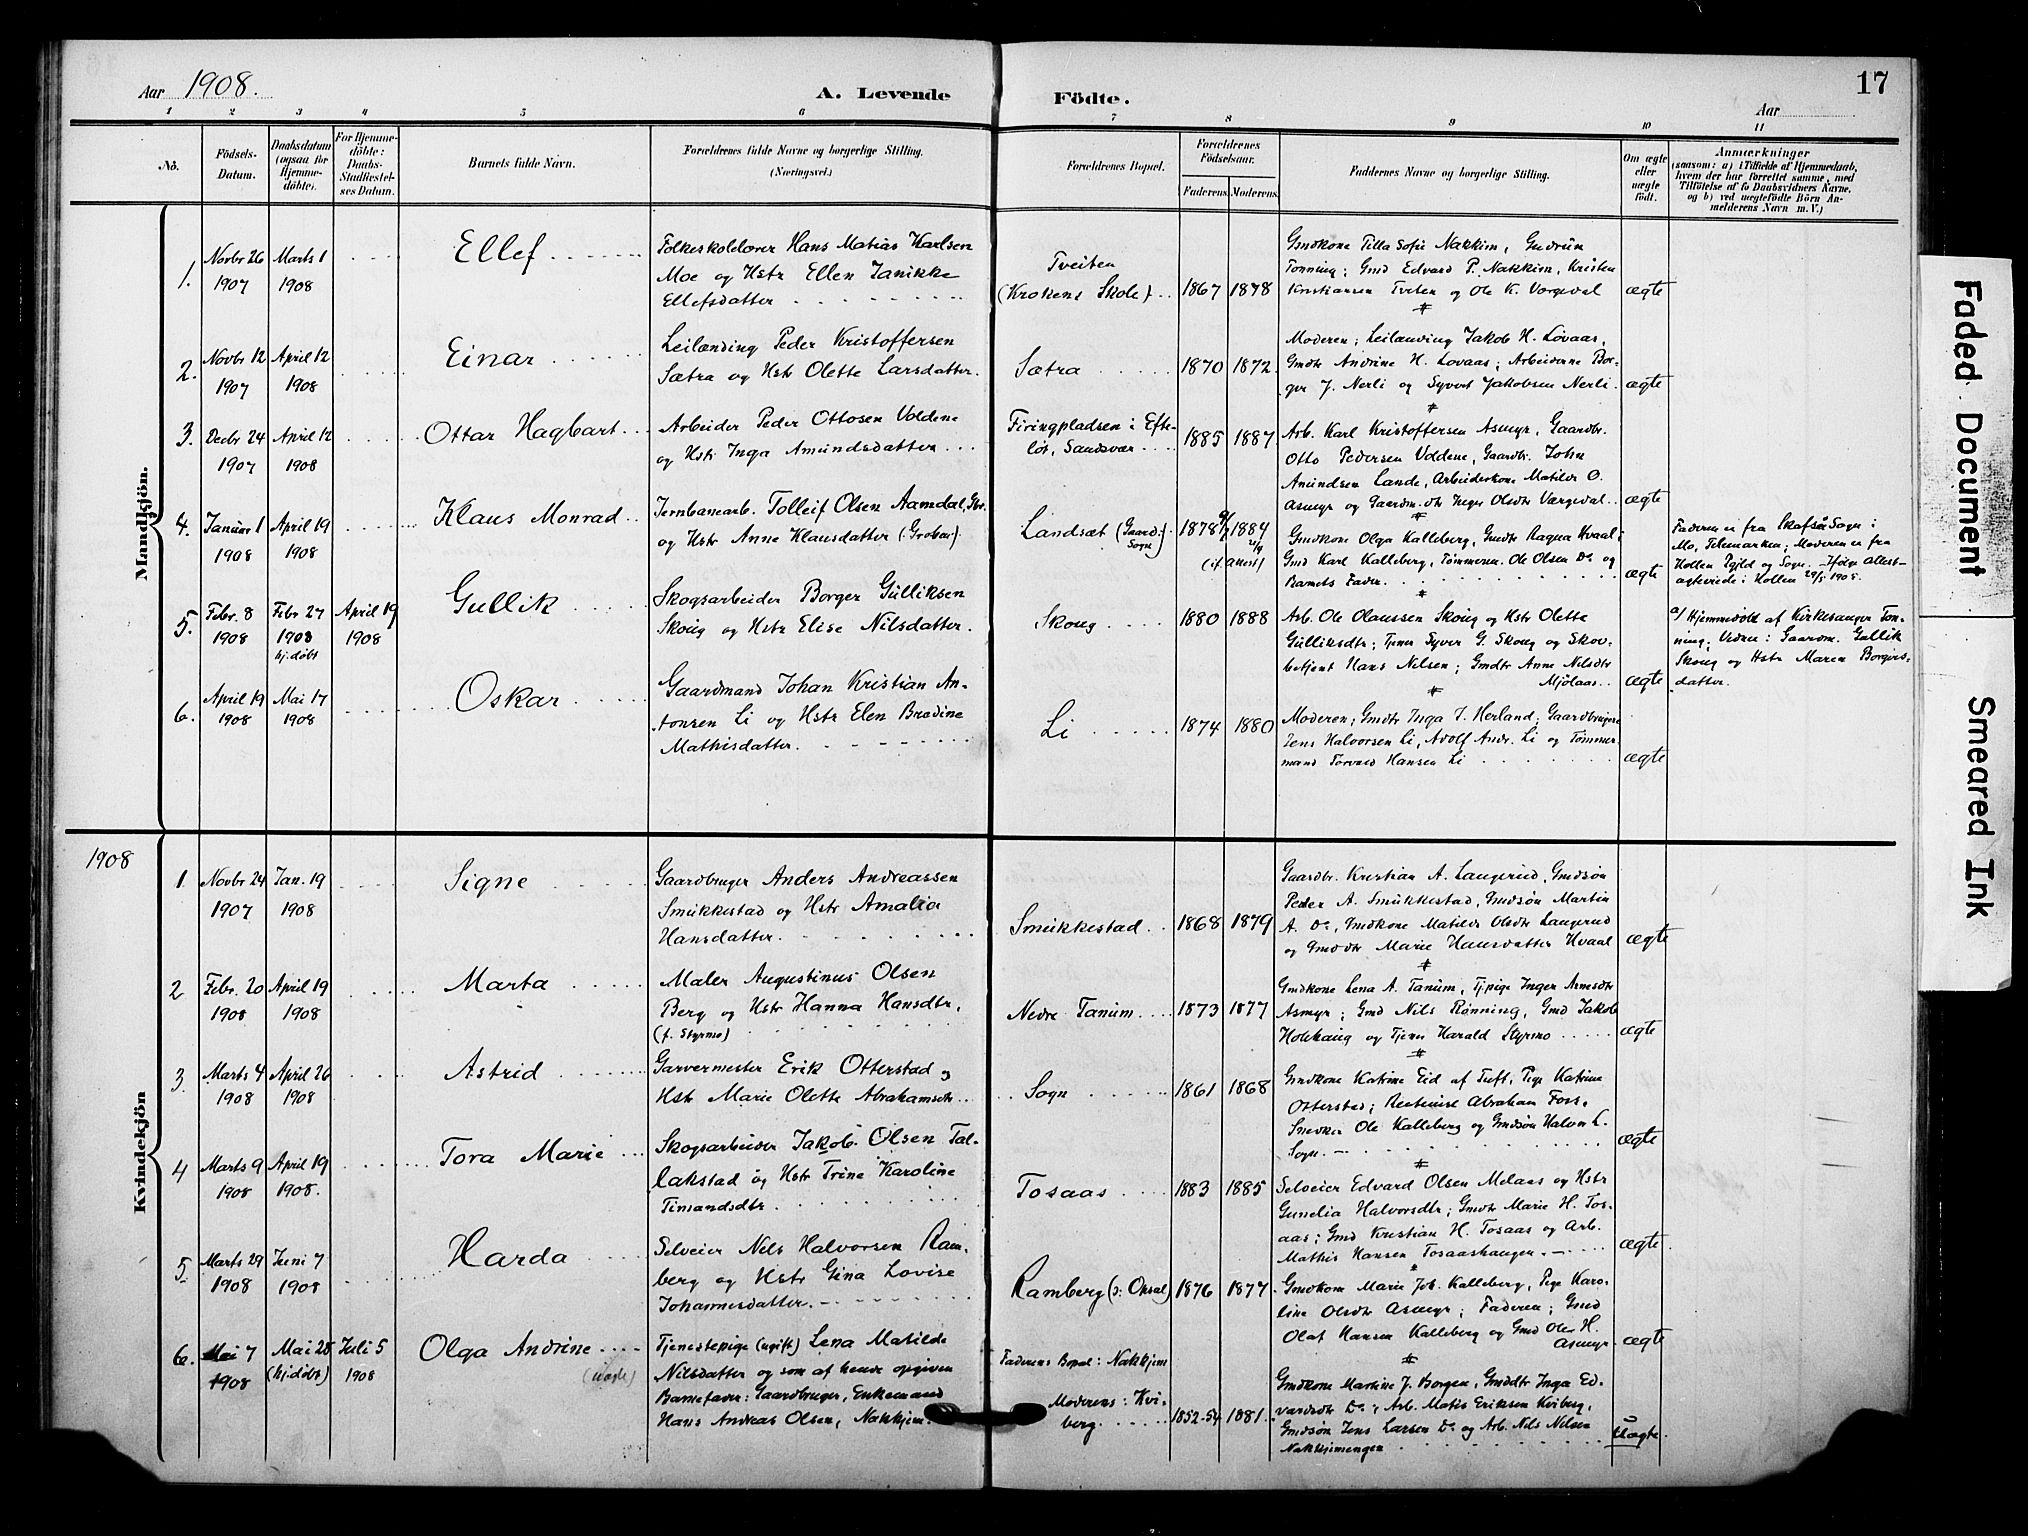 Aar 1908.
A. Levende
Födte.
Aar
17
1 2 3 4 5 6 7 8 9 10 11
No.
Födsels-
Datum.
Daabsdatum
(ogsaa for
Hjemme-
döbte).
For Hjemme-
döbte:
Daabs-
Stadfæstel-
ses Datum.
Barnets fulde Navn.
Forældrenes fulde Navne og borgerlige Stilling.
(Næringsvei.)
Forældrenes Bopæl.
Forældrenes
Födselsaar.
Faderens. Moderens.
Faddernes Navne og borgerlige Stilling.
Om ægte
eller
uægte
födt.
Anmærkninger
(saasom: a) i Tilfælde af Hjemmedaab,
hvem der har forrettet samme, med
Tilföielse af to Daabsvidners Navne,
og b) ved uægtefödte Börn An-
melderens Navn m. V.)
Mandkjön.
1.
Novbr 26
1907
Marts 1
1908
Ellef
Folkeskolelærer Hans Matias Karlsen
Moe og Hstr Ellen Janikke
Ellefsdatter
Tveiten
(Krokens Skole)
1867 1878
Gmdkone Tilla Sofie Nakkim, Gudrun
Tonning; Gmd Edvard P. Nakkim, Kristen
Kristiansen Tveten og Ole K. Værgeval
ægte
2.
Novbr 12
1907
April 12
1908
Einar
Leilænding Peder Kristoffersen
Sætra og Hstr Olette Larsdatter.
Sætra
1870 1872
Moderen; Leilænding Jakob H. Lovaas,
Gmdtr Andrine H. Lovaas; Arbeiderne Bor-
ger J. Nerli og Syvert Jakobsen Nerli.
ægte
3.
Decbr 24
1907
April 12
1908
Ottar Hagbart
Arbeider Peder Ottosen Voldene
og Hstr Inga Amundsdatter
Firingpladsen i Efte-
löt, Sandsvær
1885 1887
Arb. Karl Kristoffersen Asmyr, Gaardbr.
Otto Pedersen Voldene, Gaardbr. John
Amindsen Lande, Arbeiderkone Matilde O.
Asmyr og Gaardm.dtr Inger Olsdtr Værgeval
ægte
4.
Januar 1
1908
April 19
1908
Klaus Monrad
Jernbanearb. Tolleif Olsen Aamdal, Gbr.
og Hstr Anne Klausdatter (Groben)
Landsæt (Gaard:
Sogn)
1878 1884
(if. attest)
Gmdkone Olga Kalleberg, Gmdtr Ragna Hvaal;
Gmd Karl Kalleberg, Tømmerm. Ole Olsen Do og
Barnets Fader.
ægte
Faderen er fra Skafså Sogn i
Mo, Telemarken; Moderen er fra
Hollen Pgjld og Sogn. Ifølge Attest
ægteviede i Hollen 1905.
5.
Febr. 8
1908
Febr 27
1908
hj.døbt
April 19
1908
Gullik
Skogsarbeider Borger Gulliksen
Skoug og Hstr Elise Nilsdatter.
Skoug
1880 1888
Arb. Ole Olaussen Skoug og Hstr Olette
Gulliksdtr; Tjener Syver G. Skoug og Skov-
betjent Hans Nilsen; Gmdtr Anne Nilsdtr
Mjølaas
ægte
a/ Hjemmedøbt af Kirkesanger Ton-
ning; Vidner: Gaardm. Gullik
Skoug og Hstr Maren Borgers-
datter.
6.
April 19
1908
Mai 17
1908
Oskar
Gaardmand Johan Kristian An-
tonsen Li og Hstr Elen Bredine
Mathisdatter.
Li
1874 1880
Moderen; Gmdtr Inga J. Herland; Gaardbrugere
Jens Halvorsen Li, Adolf Andr. Li og Tømmer-
mand Torvald Hansen Li
ægte
1908
Kvindekjön
1.
Novbr 24
1907
Jan. 19
1908
Signe
Gaardbruger Anders Andreassen
Smukkestad og Hstr Amalia
Hansdatter
Smukkestad
1868 1879
Gaardbr. Kristian A. Laugerud, Gmdsøn
Peder A. Smukkestad, Gmdsøn Martin
A. Do, Gmdkone Matilde Olsdtr Laugerud
og Gmddtr Marie Hansdatter Hvaal
ægte
2
Febr. 20
1908
April 19
1908
Marta
Maler Augustinus Olsen
Berg og Hstr Hanna Hansdtr,
(f. Styrmo)
Nedre Tanum
1873 1877
Gmdkone Lena A. Tanum, Tjpige Inger Arnesdtr
Asmyr; Gmd Nils Rønning, Gmd Jakob
Holehaug og Tjener Harald Styrmo
ægte
3
Marts 4
1908
April 26
1908
Astrid
Garvermester Erik Otterstad og
Hstr Marie Olette Abrahamsdtr
Sogn
1861 1868
Gmdkone Katrine Eid af Tuft, Pige Katrine
Otterstad; Abraham Foss,
Snedker Ole Kalleberg og Gmdsøn Halvor L.
Sogn.
ægte
4
Marts 9
1908
April 19
1908.
Tora Marie
Skogsarbeider Jakob Olsen Tal-
lakstad og Hstr Trine Karoline
Timandsdtr
Tosaas
1883 1885
Selveier Edvard Olsen Melaas og Hstr
Gunelia Halvorsdtr; Gmdtr Marie H. Tos-
aas; Gmd Kristian H. Tosaas og Arb.
Mathis Hansen Tosaashaugen
ægte
5.
Marts 29
1908
Juni 7
1908
Harda
Selveier Nels Halvorsen Ram-
berg og Hstr Gina Lovise
Johannesdatter.
Ramberg (v. Opsal)
1876 1877
Gmdkone Marie Joh. Kalleberg, Pige Karo-
line Olsdtr Asmyr; Faderen; Gmd
Olaf Hansen Kalleberg og Gmd Ole H.
Asmyr
ægte
6.
Mai 7
1908
Mai 28
(hj.døbt)
Juli 5
1908
Olga Andrine
(uægte)
Tjenestepige (ugift) Lena Matilde
Nilsdatter og som af hende opgiven
Barnefader: Gaardbruger, Enkemand
Hans Andreas Olsen, Nakkjem.
Faderens Bopæl: Nakkjem
Moderens: Kvi-
berg
1852-54 1881.
Gmdkone Martine J. Borgen, Gmddtr Inga Ed-
vardsdtr Do; Arb. Mates Eriksen Kviberg,
Gmdsøn Jens Larsen Do og Arb. Nels Nilsen
Nakkjemengen
Uægte
Faded Document
Smeared Ink